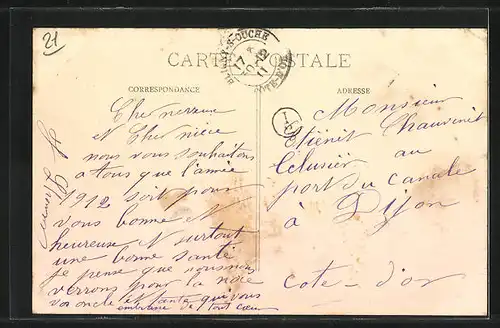 21
CARTE POSTALE
BLIGNY-S-OUCHE
17 30-12 11
COTE-D'OR
CORRESPONDANCE
ADRESSE
Cher neveux
et Cher nièce
nous vous souhaitons
a tous que l'année
1912 soit pour
vous bonne et
heureuse et surtout
une bonne santé
je pense que nous nous
verrons pour la noce
vos oncle et tante qui vous
embrasse de tout cœur
Monsieur
Chauvinet
Eclusier au
port du canale
à Dijon
cote-d'or